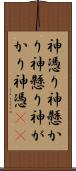 神憑り神懸か
り神懸り神が
かり神憑